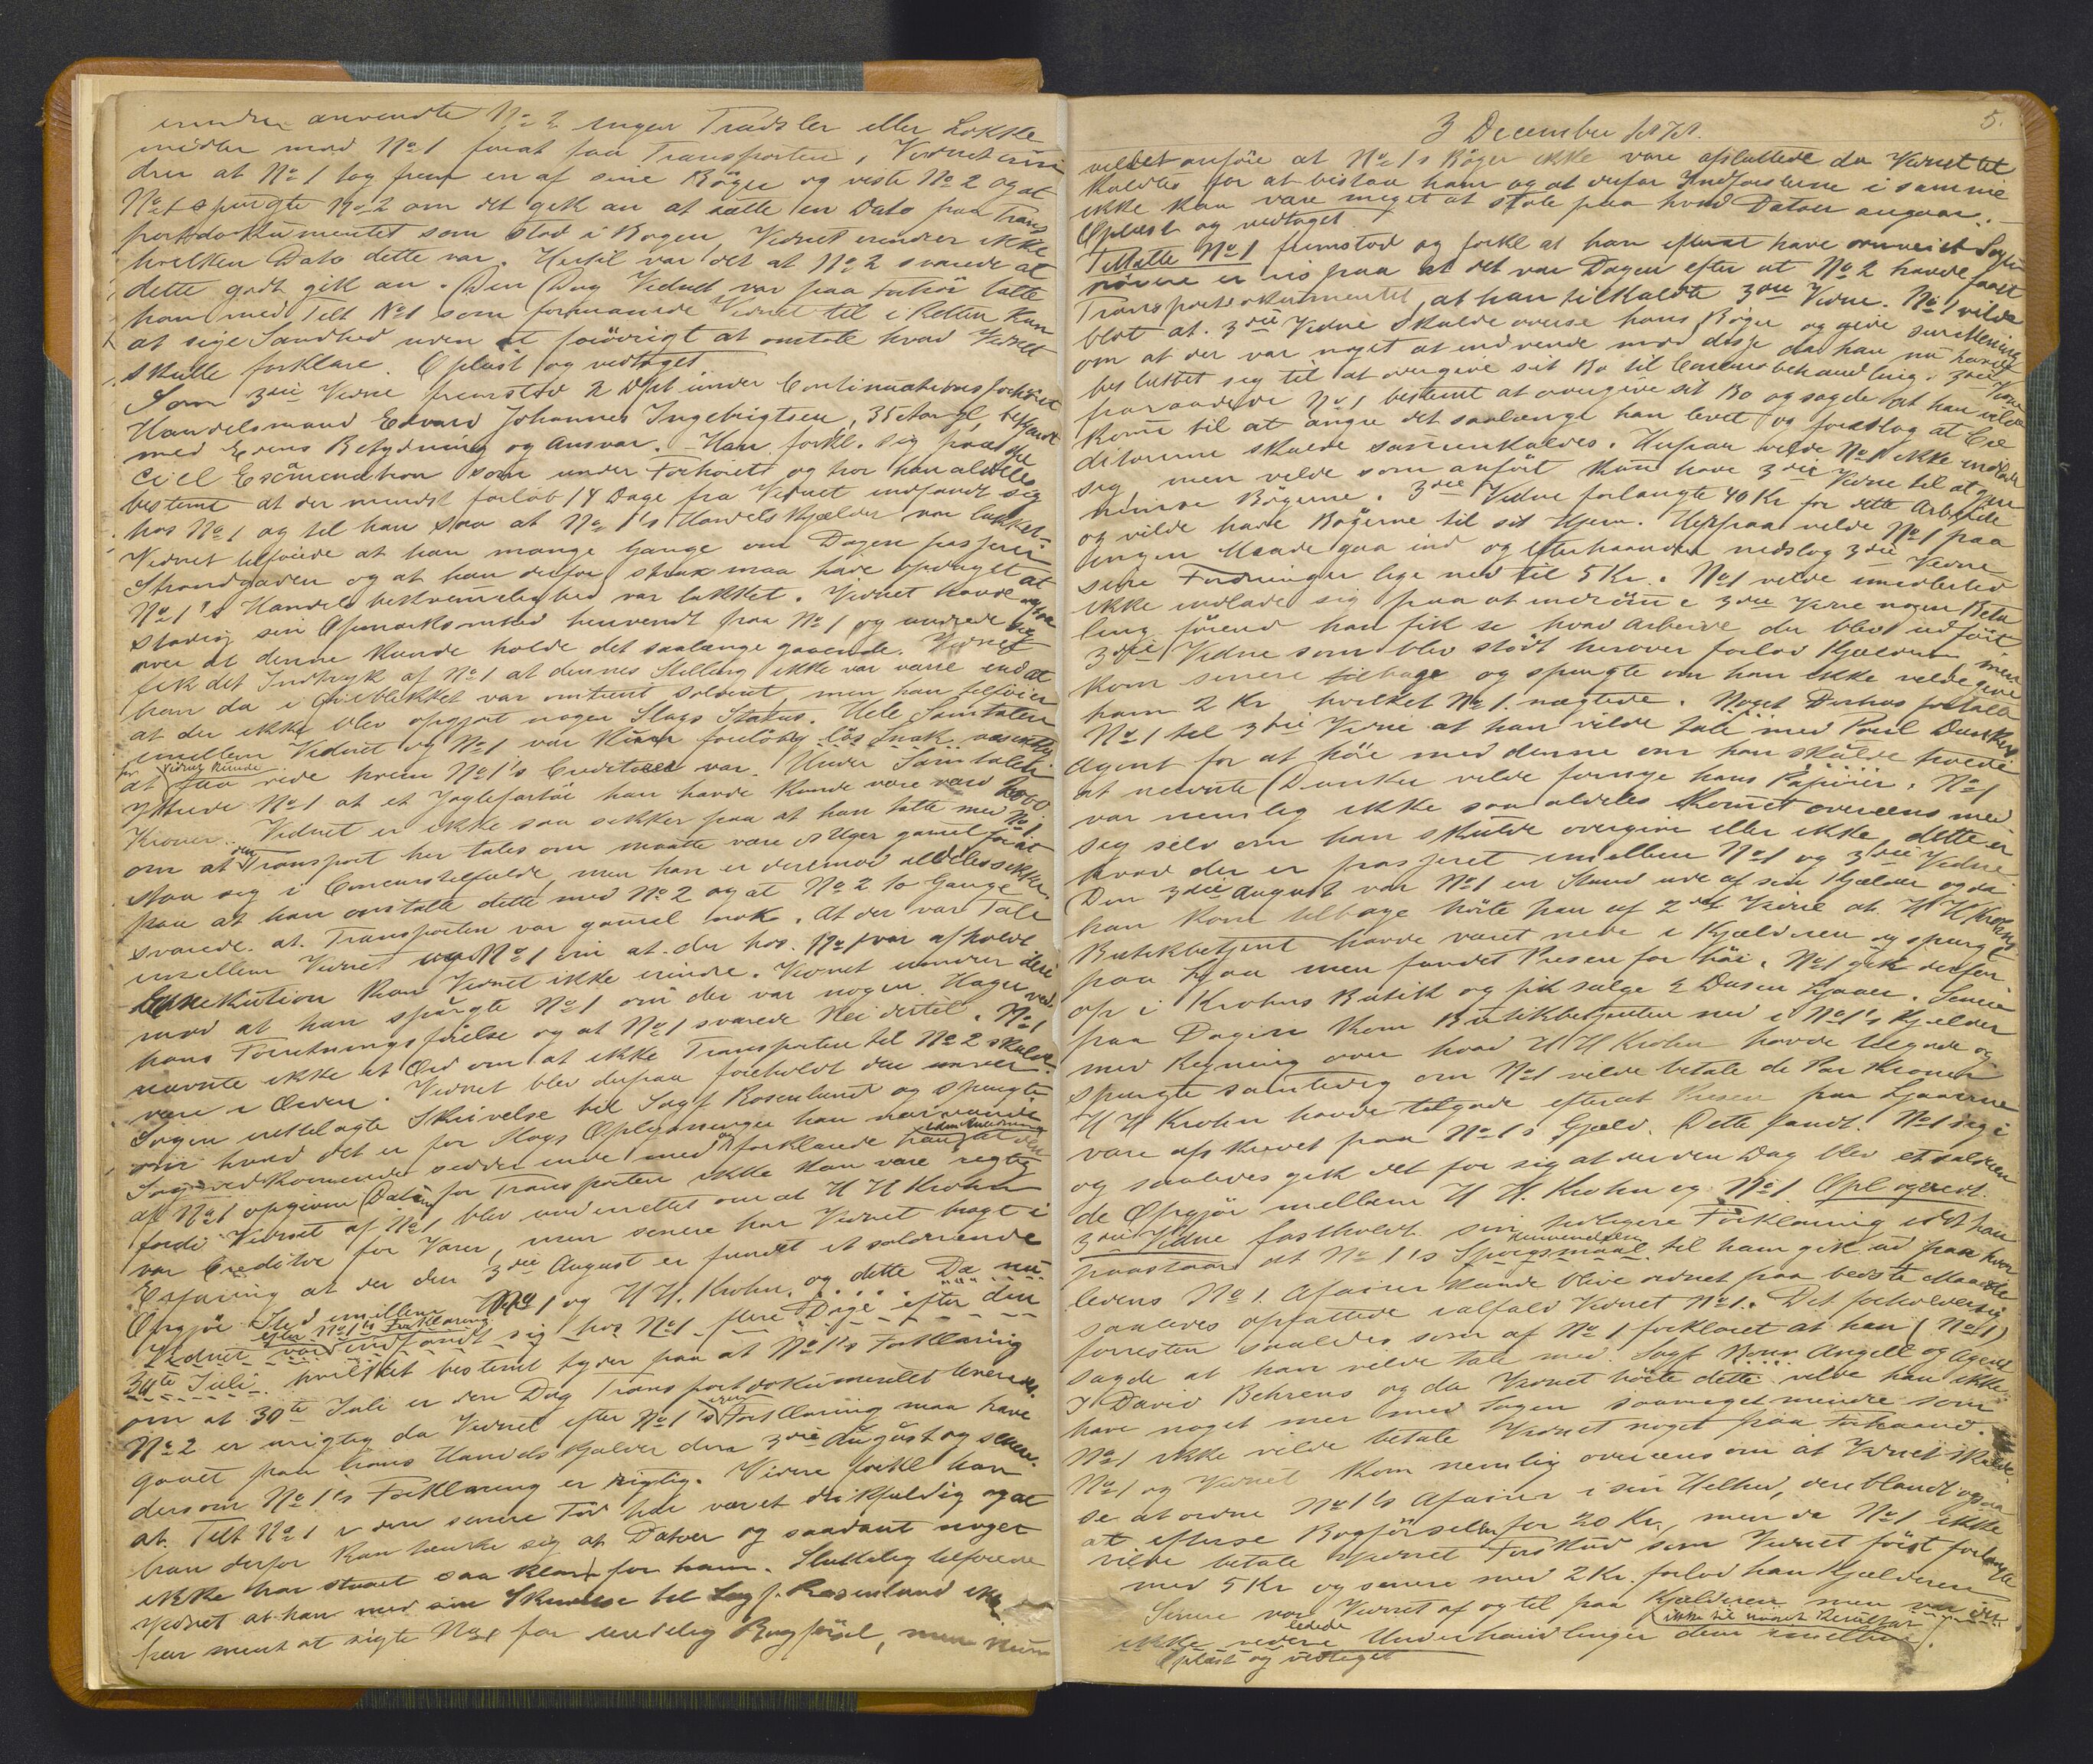 anvendte No 2 ingen Trudsler eller Lokke
midler mod No 1 forat faa Transporten, Vidnet erin
drer at No 1 tog frem en af sine Böger og viste No 2 og at
No 1 spurgte No 2 om det gik an at sætte en Dato paa Trans
portdokumentet som stod i Bogen, Vidnet erindrer ikke
hvilken Dato dette var. Hertil var det at No 2 svarede at
dette godt gik an. Den Dag Vidnet var paa Forhör talte
han med Tilt No 1 som formanede Vidnet til i Retten kun
at sige Sandhed uden at forövrigt at omtale hvad Vidnet
skulle forklare. Oplæst og vedtaget
Som 3die Vidne fremstod 2 Dpt under Continuationsforhöret
Handelsmand Edvard Johannes Ingebrigtsen, 35 Aar gl, bekjendt
med Edens Betydning og Ansvar. Han forkl. sig paa spe
ciel Examination som under Forhöret og tror han aldeles
bestemt at der mindst forlöb 14 Dage fra Vidnet indfandt sig
hos No 1 og til han saa at No 1's Handelskjælder var lukket.
Vidnet tilföiede at han mange Gange om Dagen passerer
Strandgaden og at han derfor strax maa have opdaget at
No 1's Handelsbekvemmelighed var lukket. Vidnet havde ogsaa
stadig sin Opmærksomhed henvendt paa No 1 og undrede sig
over at denne kunde holde det saalænge gaaende. Vidnet
fik det Indtryk af No 1 at dennes Stilling ikke var værre end at
han da i Öieblikket var omtrent solvent, men han tilföier
at der ikke blev opgjort nogen Slags Status. Hele Samtalen
imellem Vidnet og No 1 var kun forelöbig lös Snak
at faa vide hvem No 1's Creditorer var. Under Samtalen
yttrede No 1 at et Jagtefartöi han havde kunde være værd
Kroner. Vidnet er ikke saa sikker paa at han talte med No 1
om at den Transport her tales om maatte være 8 Uger gamel for at
staa sig i Concurstilfælde, men han er derimod aldeles sikker
paa at han omtalte dette med No 2 og at No 2 to Gange
svarede at Transporten var gamel nok. At der var Tale
imellem Vidnet og No 1 om at der hos No 1 var afholdt
Exekution kan Vidnet ikke erindre. Vidnet erindrer deri
mod at han spurgte No 1 om der var nogen Hager ved
hans Forretningsförelse og at No 1 svarede Nei dertil. No 1
nævnte ikke et Ord om at ikke Transporten til No 2 skulde
være i Orden. Vidnet blev derpaa foreholdt den under
Sagen irettelagte Skrivelse til Sagf Rosenlund og spurgte
om hvad det er for Slags Oplysninger han nærværende
Sag vedkommende sidder inde med og forklarede han at den
af No 1 opgivne Datum for Transporten ikke kan være rigtig
fordi Vidnet af No 1 blev underrettet om at H H Krohn
var Creditor for Varer, men senere har Vidnet bragt i
Erfaring at der den 3die August er fundet et solderende
Opgjör Sted imellem No 1 og H H. Krohn, og dette Da nu
Vidnet efter No 1's Forklaring indfandt sig hos No 1 flere Dage efter den
30te Juli hvilket bestemt tyder paa at No 1's Forklaring
om at 30te Juli er den Dag Transportdokumentet leveredes
No 2 er urigtig da Vidnet efter No 1's Forklaring maa have
gaaet paa hans Handelskjælder den 3die August og senere
dersom No 1's Forklaring er rigtig. Vidne forkl han
at Tilt No 1 i den senere Tid har været drikfældig og at
han derfor kan tænke sig at Datoer og saadant noget
ikke har staaet saa klart for ham. Sluttelig tilföiede
Vidnet at han med sin Skrivelse til Sagf. Rosenlund ikke
har ment at sigte No 1 for uredelig Bogförsel, men kun
5.
3 December 1878.
villet anföre at No 1s Böger ikke vare afsluttede da Vidnet til
kaldtes for at bistaa ham og at derfor Indforslerne i samme
ikke kan være meget at stole paa hvad Datoer angaar.
Oplæst og vedtaget
Tiltalte No 1 fremstod og forkl at han efterat have
nöiere er vis paa at det var Dagen efter at No 2 havde faaet
Transportdokumentet, at han tilkaldte 3die Vidne. No 1 vilde
blot at 3die Vidne skulde overse hans Böger og give sin Mening
om at der var noget at indvende mod disse da han nu havde
besluttet sig til at overgive sit Bo til Concursbehandling. 3die Vidne
fraraadede No 1 bestemt at overgive sit Bo og sagde at han vilde
kome til at angre det saalænge han levet og foreslog at Cre
ditorerne skulde sammenkaldes. Herpaa vilde No 1 ikke indlade
sig men vilde som anfört kun have 3die Vidne til at gjen
nemse Bögerne. 3die Vidne forlangte 40 Kr for dette Arbeide
og vilde have Bögerne til sit Hjem. Herpaa vilde No 1 paa
ingen Maade gaa ind og efterhaanden nedslog 3die Vidne
sine Fordringer lige ned til 5 Kr. No 1 vilde imidlertid
ikke indlade sig paa at indrömme 3die Vidne nogen Beta
ling förend han fik se hvad Arbeide der blev udfört
3die Vidne som blev stödt herover forlod Kjælderen men
kom senere tilbage og spurgte om han ikke vilde give
ham 2 Kr hvilket No 1. nægtede. Noget Derhos fortalte
No 1 til 3die Vidne at han vilde tale med Poul Dunker
Agent for at höre med denne om han skulde
at nævnte Dunker vilde fornye hans Papirer. No 1
var nemlig ikke saa aldeles kommet overeens med
sig selv om han skulde overgive eller ikke, dette er
hvad der er passeret imellem No 1 og 3die Vidne
Den 3die August var No 1 en Stund ude af sin Kjælder og da
han kom tilbage hörte han af 2det Vidne at H H Krohns
Butikbetjent havde været nede i Kjælderen og spurgt
paa Ljaa men fundet Prisen for höi. No 1 gik derfor
op i Krohns Butik og fik solgt 2 Dusin Ljaaer. Senere
paa Dagen kom Butikbetjenten ned i No 1's Kjælder
med Regning over hvad H H Krohn havde tilgode og
spurgte samtidig om No 1 vilde betale de Par Kroner
H H Krohn havde tilgode efterat Prisen paa Ljaaerne
vare afskrevet paa No 1s Gjæld. Dette fandt No 1 sig i
og saaledes gik det for sig at der den Dag blev et solderen
de Opgjör mellem H H. Krohn og No 1. Opl og vedt.
3die Vidne fastholdt sin tidligere Forklaring idet han
paastaar at No 1's Henvendelse Spörgsmaal til ham gik ud paa hvor
ledens No 1. Afairer kunde blive ordnet paa bedste Maade
saaledes opfattede ialfald Vidnet No 1. Det forholder sig
forresten saaledes som af No 1 forklaret at han (No 1)
sagde at han vilde tale med Sagf Angell og Agent
David Behrens og da Vidnet hörte dette vilde han ikke
have noget mer med Sagen saameget mindre som
No 1 ikke vilde betale Vidnet noget paa Forhaand.
No 1 og Vidnet kom nemlig overeens om at Vidnet skulde
se at ordne No 1's Afairer i sin Helhed, deriblandt ogsaa
at efterse Bogförselen for 20 Kr., men da No 1 ikke
vilde betale Vidnet Forskud som Vidnet först forlangte
med 5 Kr og senere med 2 Kr. forlod han Kjælderen
Senere var Vidnet af og til paa Kjælderen men
ikke videre ledede Underhandlinger dem imellem ikke til noget Resultat.
Oplæst og vedtaget